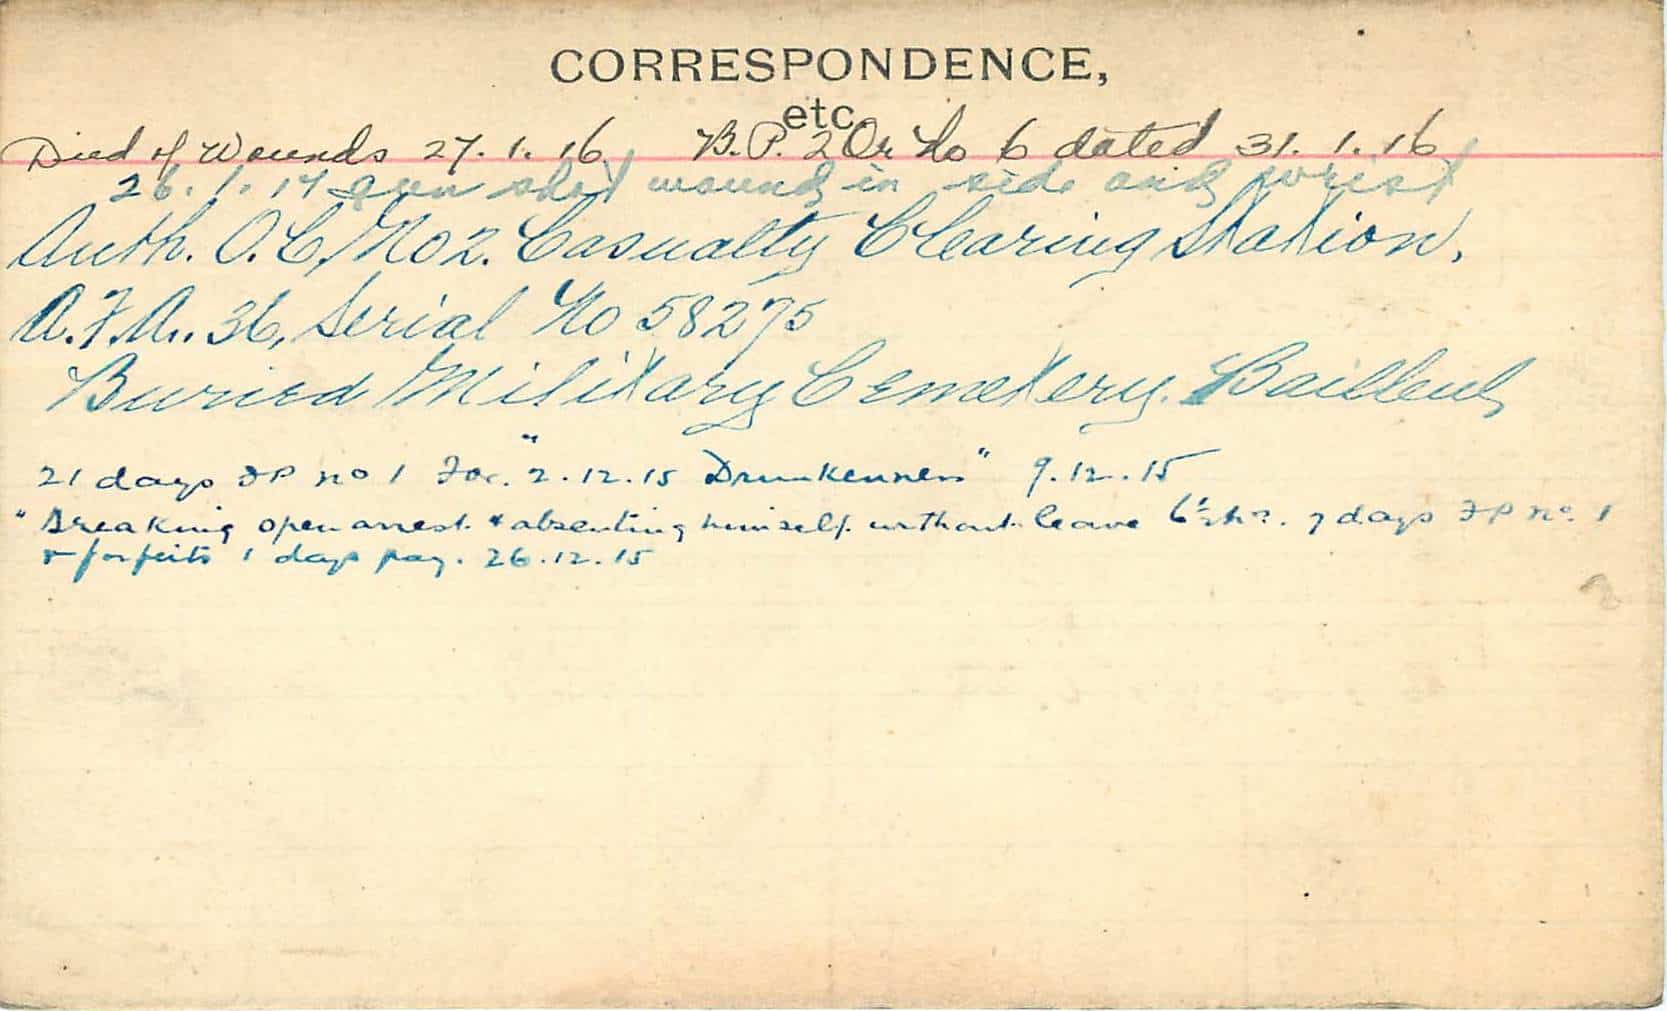 CORRESPONDENCE,
etc.
Died of Wounds 27.1.16 B.P. 2 Or No 6 dated 31.1.16
26.1.17 gun shot wound in side and wrist
Auth. O.C. No 2. Casualty Clearing Station,
A.F.A. 36, Serial No 58275
Buried Military Cemetery. Bailleul
21 days FP no 1 For. "2.12.15 Drunkenness" 9.12.15
"Breaking open arrest & absenting himself without leave 7 days FP no. 1
& forfeits 1 days pay. 26.12.15